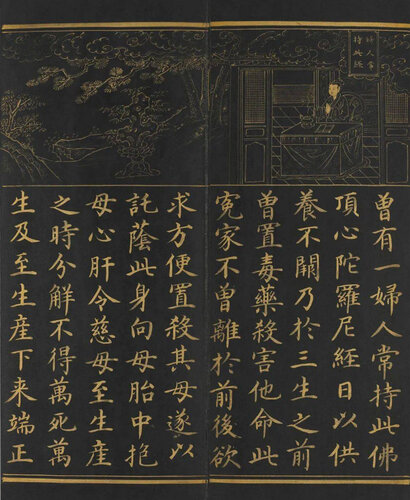 婦人常
持此經
曾有一婦人常持此佛
頂心陀羅尼經日以供
養不闕乃於三生之前
曾置毒藥殺害他命此
冤家不曾離於前後欲
求方便置殺其母遂以
託蔭此身向母胎中抱
母心肝令慈母至生産
之時分解不得萬死萬
生及至生産下来端正